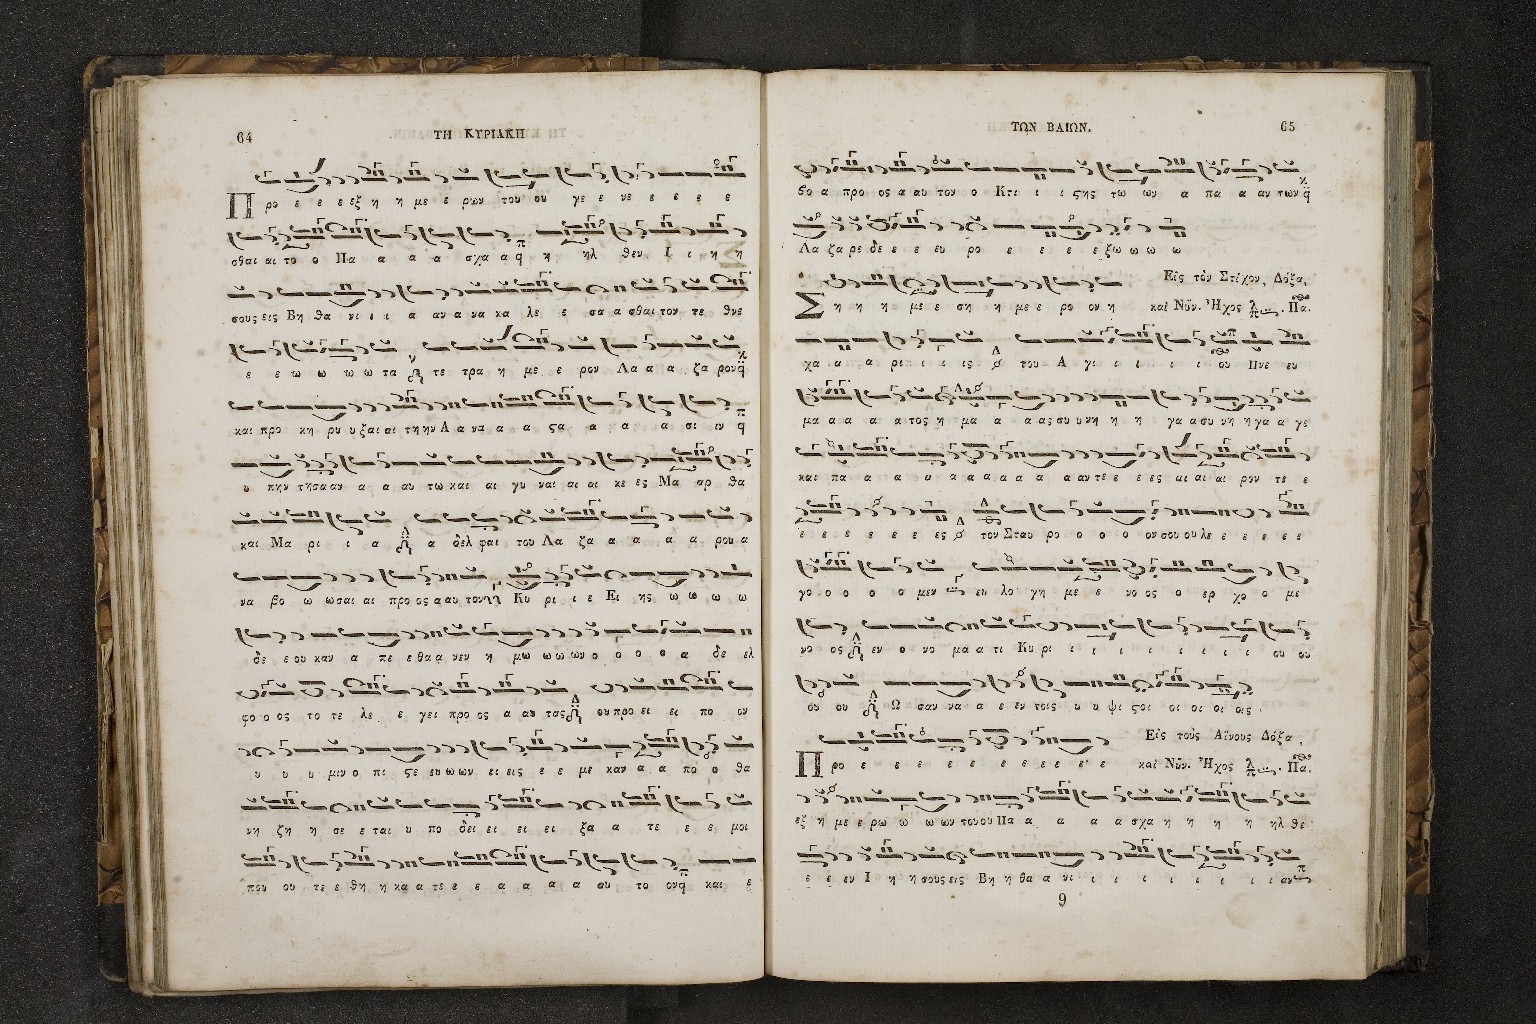 64
ΤΗ ΚΥΡΙΑΚΗ
Προ ε ε ε εξ η η με ε ρων του ου γε ε νε ε ε ε ε
σθαι αι το ο Πα α α α σχα α η ηλ θεν Ι ι η η
σους εις Βη θα νι ι ι α αν α να κα λε ε σα α σθαι τον τε θνε
ε ε ω ω ω ω τα τε τρα η με ε ρον Λα α α ζα ρον
και προ κη ρυ υ ξαι αι τη ην Α α να α α ςα α α α α σι ιν
υ πην τησα αν α α αυ τω και αι γυ ναι αι αι κε ες Μα αρ θα
και Μα ρι ι α α δελ φαι του Λα ζα α α α α ρου α
να βο ω ωσαι αι προ ος α αυ τον Κυ ρι ι ε Ει ης ω ω ω ω
δε ε ου καν α πε ε θα α νεν η μω ω ω ων ο ο ο ο α δε ελ
φο ο ος το τε λε ε γει προ ος α αυ τας ου προ ει ει πο ον
υ υ υ μιν ο πι ςε ευ ω ων ει εις ε ε με καν α α πο ο θα
νη ζη η σε ε ται υ πο δει ει ει ει ξα α τε ε ε μοι
που ου τε ε θη η κα α τε ε ε α α α α αυ το ον και ε
ΤΩΝ ΒΑΙΩΝ.
65
βο α προ ος α αυ τον ο Κτι ι ι ςης τω ων α πα α αν των
Λα ζα ρε δε ε ε ευ ρο ε ε ε ε ξω ω ω ω
Εἰς τὸν Στίχον, Δόξα,
Ση η η με ε ση η με ε ρο ον η καὶ Νῦν. Ἦχος Πα.
χα α α ρι ι ι ις του Α γι ι ι ι ι ου Πνε ευ
μα α α α α τος η μα α α ας συ υ νη η η γα α συ νη η γα α γε
και πα α α α α α α α α α αν τε ε ε ες αι αι αι ρον τε ε
ε ε ε ε ε ε ε ες τον Σταυ ρο ο ο ο ον σου ου λε ε ε ε ε ε
γο ο ο ο ο μεν ευ λο γη με ε νο ος ο ερ χο ο με
νο ος εν ο νο μα α τι Κυ ρι ι ι ι ι ι ι ι ου ου
ου ου Ω σαν να α ε εν τοις υ υ ψι ςοι οι οι οι οις .
Εἰς τοὺς Αἴνους Δόξα,
Προ ε ε ε ε ε ε ε ε ε ε καὶ Νῦν. Ἦχος Πα.
εξ η με ε ρω ω ω ων του ου Πα α α α α σχα η η η η ηλ θε
ε ε εν Ι η η σους εις Βη η θα α νι ι ι ι ι ι ι ι ι αν
9